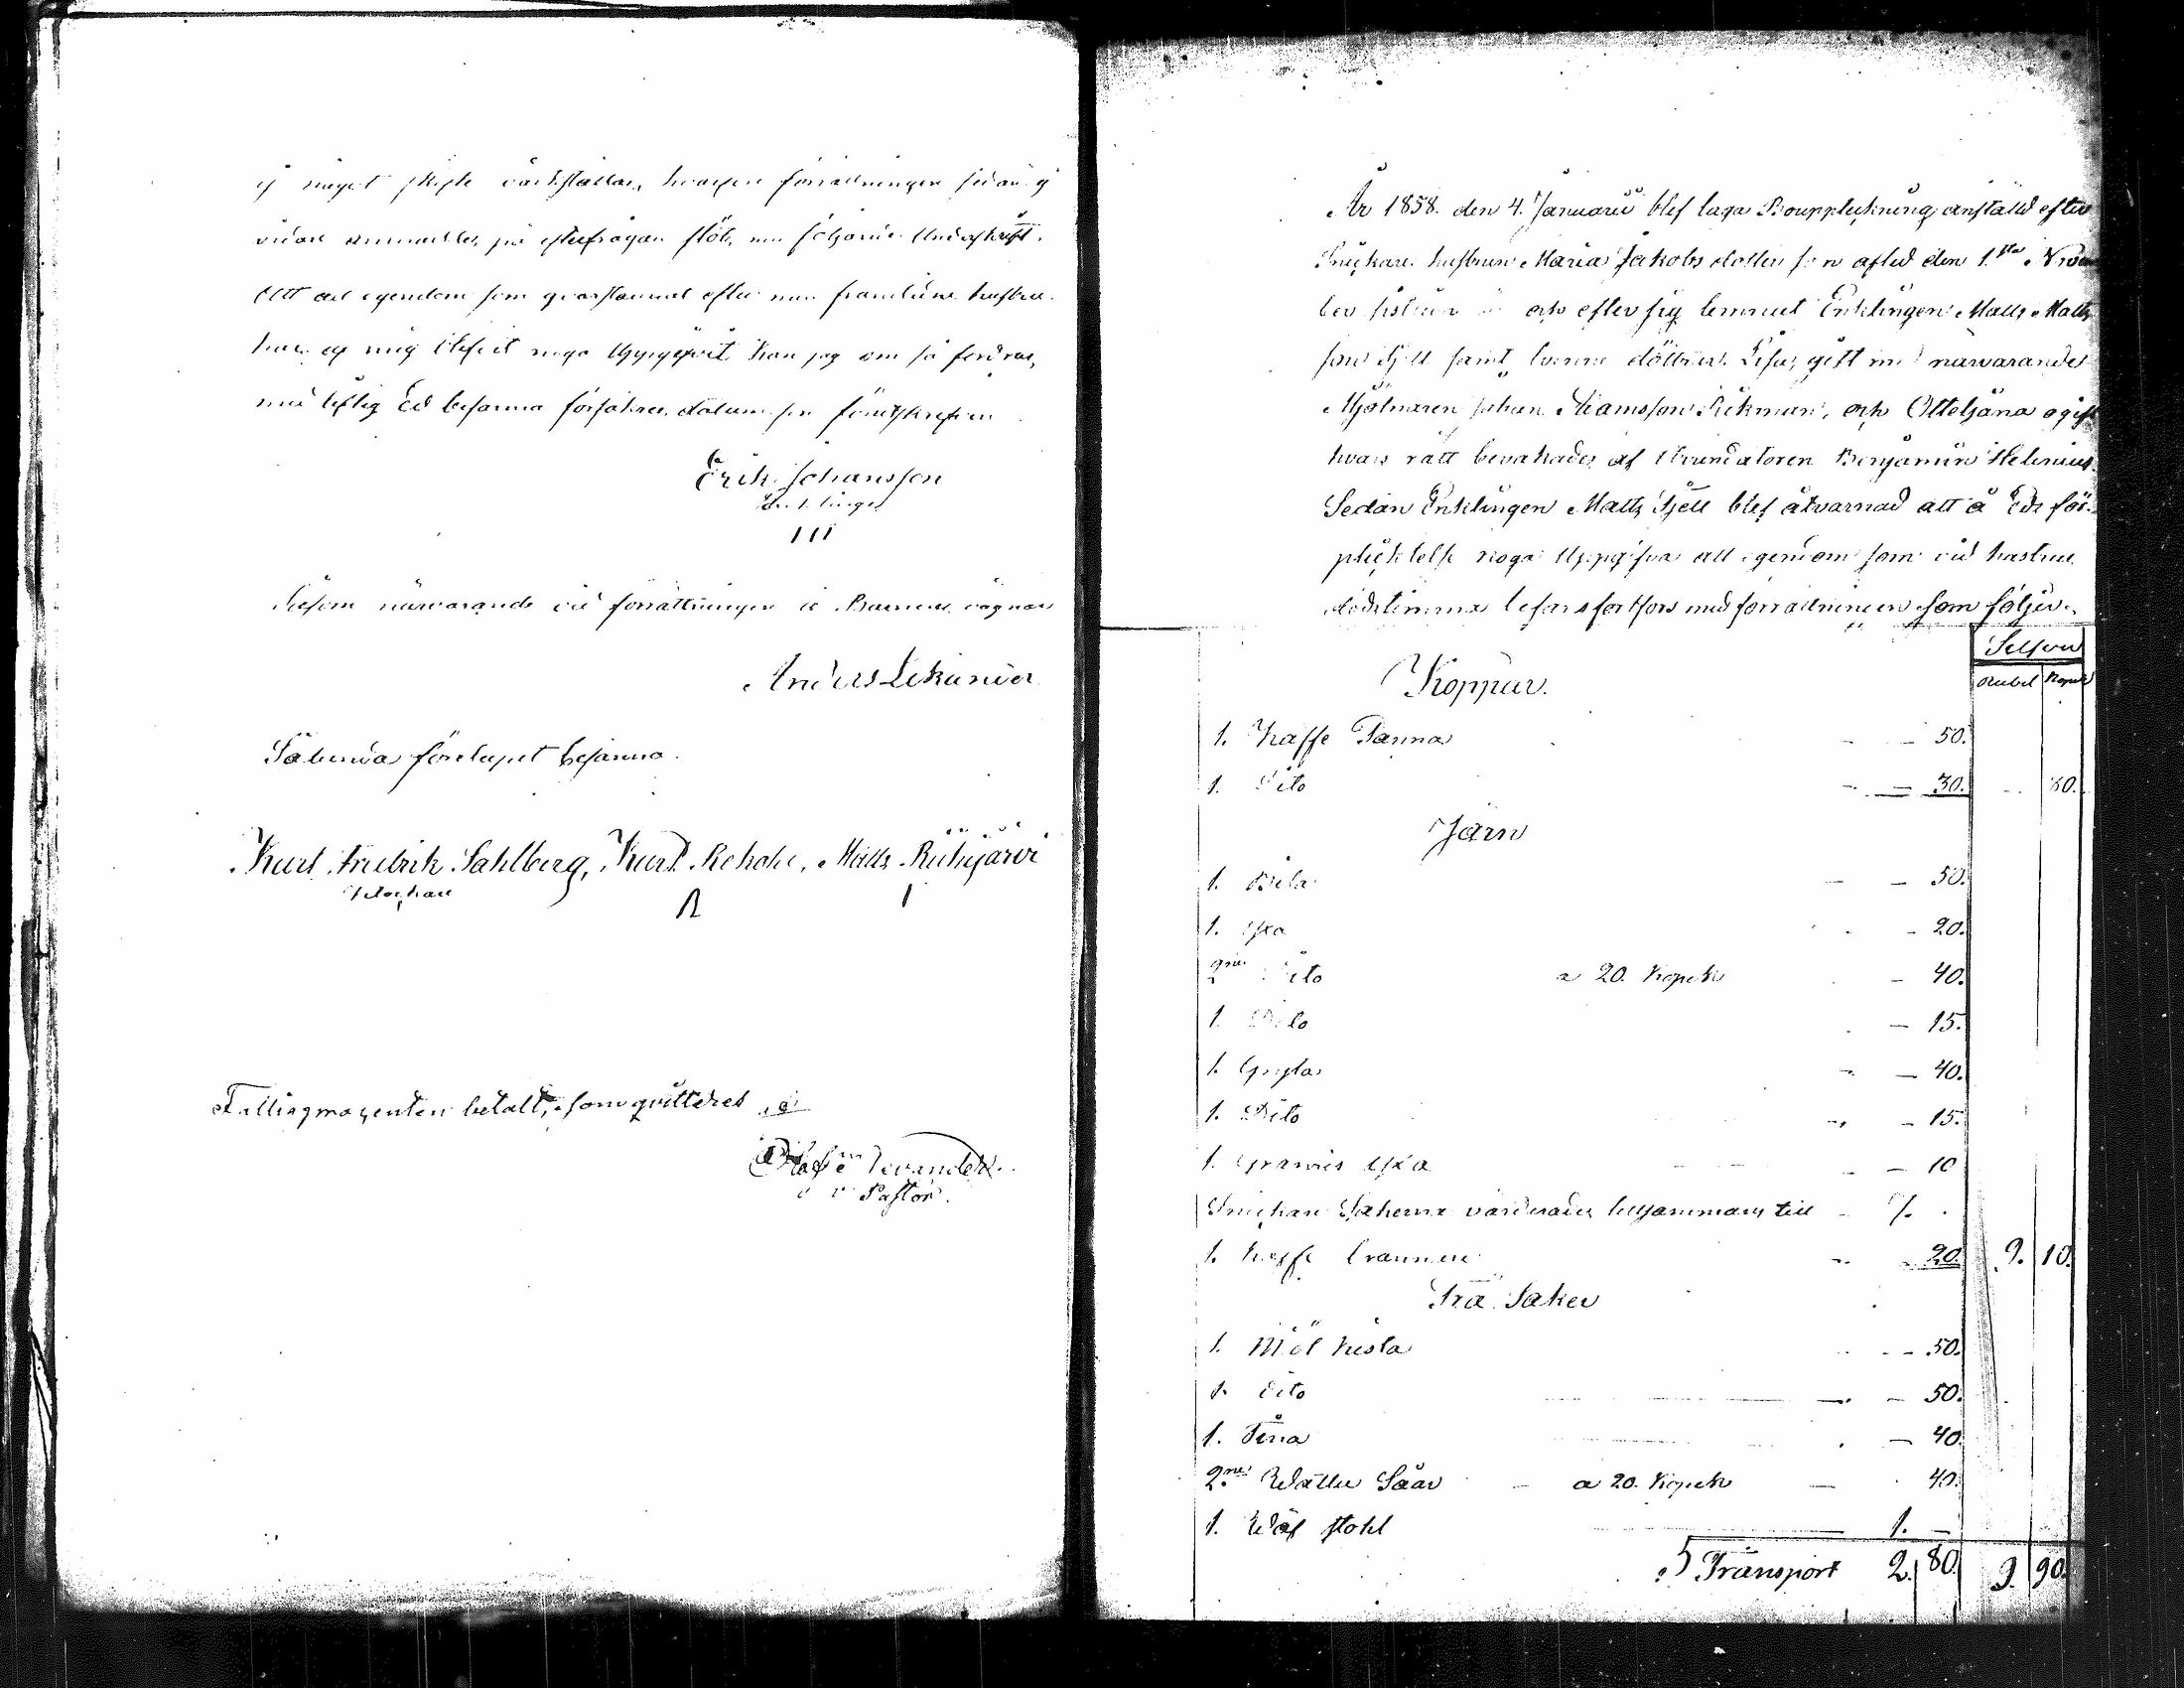 ej något skifte värkställas, hvarföre förrättningen sedan ej
vidare anmäldes på efterfrågan slöts med följande Underskrift.
Att all egendom som qvarstannat efter min framlidne hustru
har af mig blifvit noga Uppgifvit kan jag om så fordras,
med liflig Ed besanna försäkras datum som förutskrefven
Erik Johansson
Enklinge
Såsom närvarande vid förrättningen å Barnens vägnar
Anders Lekander
Sålunda förelupet besanna.
Kurt Fredrik Sahlberg, Kurt Rekola, Matts Riihijärvi
Klockare
Fattigprocenten betalt, som qvitteras
Pastor.
År 1858. den 4. Januarii blef laga Bouppteckning anstäld efter
Snickare hustrun Maria Jakobs dotter som afled den 1.sta Novem
ber sistledne och efter sig lemnat Enklingen Matts Matts
son Fjell samt tvenne döttrar Lisa, gift med närvarande
Mjölnaren Johan Adamsson Rikman, och Otteljana ogift
hvars rätt bevakades af Benjamin Helenius.
Sedan Enklingen Matts Fjell blef åtvarnad att å Eds för-
pliktelse noga Uppgifva all egendom som vid hustrus
dödstimma befans fortfors med förrättningen som följer.
Silfver
Rubel Kopek
Koppar.
1. Kaffe Panna 50.
1. Dito 30. 80.
Järn
1. Bila 50.
1. Yxa 20.
2ne Dito a 20. Kopek 40.
1. Dito 15.
1. Gryta 40.
1. Dito 15.
1. Yxa 10
Snickare Sakerna värderades tillsammans till 7.
1. Kaffe brännare 20. 9. 10.
Trä Saker
1. Mjöl kista 50.
1. dito 50.
1. Tina 40.
2.ne Watten Såar a 20. Kopek 40.
1. Wäf stohl 1. —
Transport 2. 80. 9. 90.